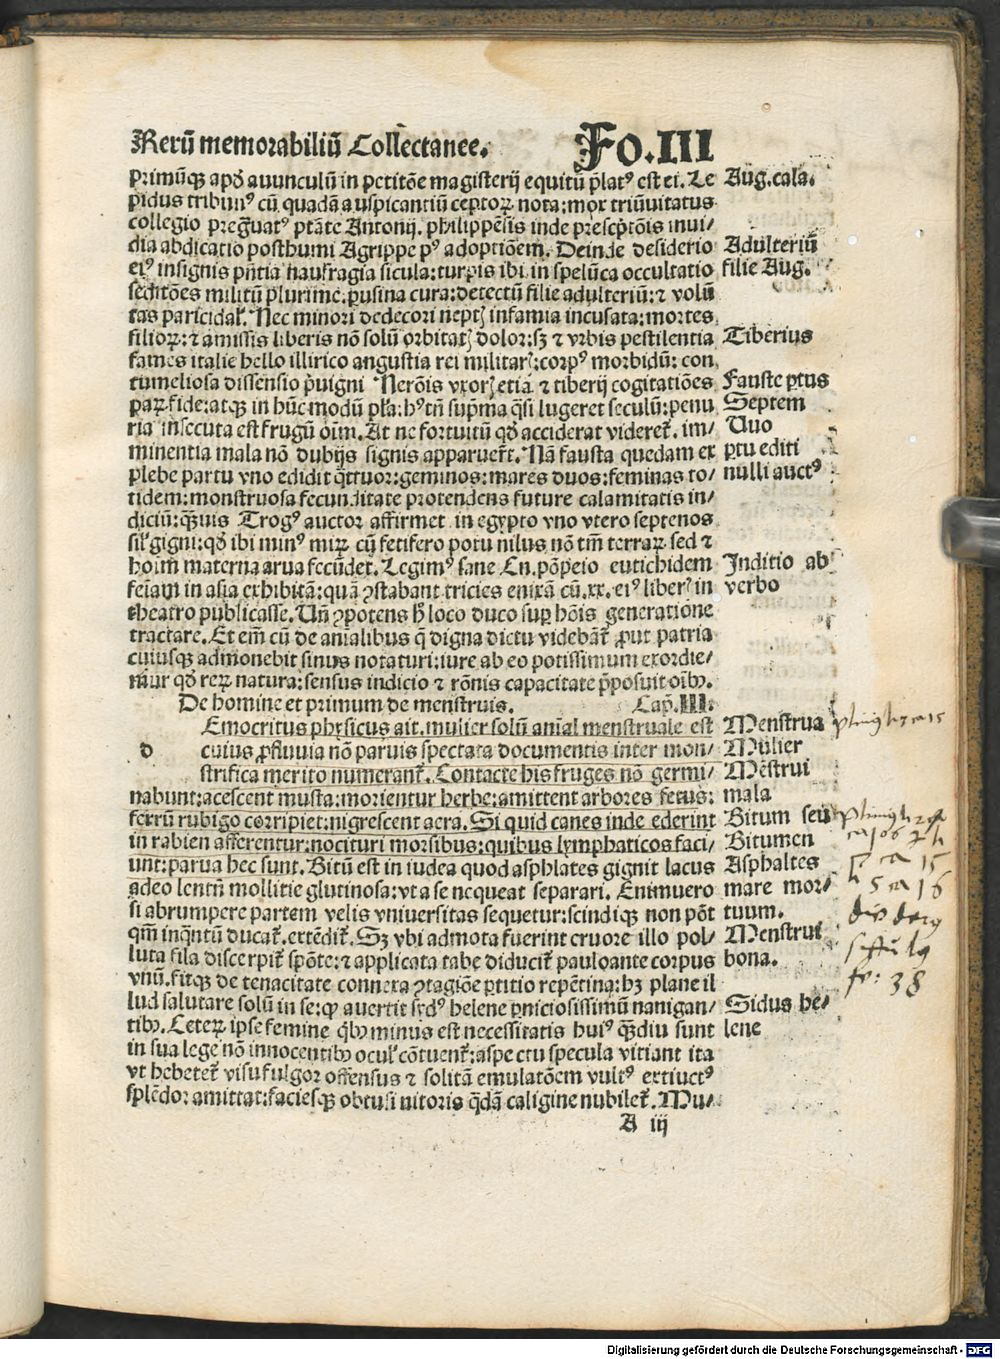 Rerū memorabiliū Collectanee. Fo. III
primūqꝫ apđ auunculū in petitōe magisterij equitū p̄latꝰ est ei. Le Aug. cala.
pidus tribunꝰ cū quadā auspicantiū ceptoꝝ nota: mox triūuiratus
collegio preg̃uatꝰ ptāte Antonij. philippēsis inde prescp̄tōis inui⸗
dia abdicatio posthumi Agrippe pꝰ adoptiōem. Deinde desiderio Adulteriū
eiꝰ insignis pñtia naufragia sicula: turpis ibi in spelūca occultatio filie Aug.
seditōes militū plurime. pusina cura: detectū filie adulteriū: ⁊ volū
tas paricidal. Nec minori dedecori nept infamia incusata: mortes
filioꝝ: ⁊ amissis liberis nō solū orbitat dolor: sꝫ ⁊ vrbis pestilentia Tiberius
fames italie bello illirico angustia rei militar: corpꝰ morbidū: con
tumeliosa dissensio p̄uigni Nerōis vxor etiā ⁊ tiberij cogitatiōes Fauste ptus
paꝝ fide: atqꝫ in hūc modū pła: hꝰ tñ sup̄ma q̄si lugeret seculū: penu Septem
ria insecuta est frugū oīm. At ne fortuitū qđ acciderat videret̄. im⸗ Vuo
minentia mala nō dubijs signis apparuerūt. Nā fausta quedam ex ptu editi
plebe partu vno edidit q̄ttuor: geminos: mares duos: feminas to⸗ nulli auctꝰ
tidem: monstruosa fecunditate protendens future calamitatis in⸗
diciū: q̄uis Trogꝰ auctor affirmet in egypto vno vtero septenos
sil gigni: qđ ibi minꝰ miꝝ cū fetifero potu nilus nō tm̄ terraꝝ sed ⁊
hoīm materna arua fecūdet. Legimꝰ sane Cn. pōpeio eutichidem Inditio ab
feīam in asia exhibitā: quā ꝯstabant tricies enixā cū. xx. eiꝰ liber in verbo
theatro publicasse. Uñ ꝯpotens h̄ loco duco sup hōis generatione
tractare. Et em̄ cū de anīalibus q̄ digna dictu videbāt̄ ꝓut patria
cuiusqꝫ admonebit sinus notaturi: iure ab eo potissimum exordie⸗
mur qđ reꝝ natura: sensus indicio ⁊ rōnis capacitate p̄posuit oībꝫ.
De homine et primum de menstruis. Cap. III.
Emocritus physicus ait. mulier solū anīal menstruale est Menstrua
d cuius ꝓfluuia nō paruis spectata documentis inter mon⸗ Mulier
strifica merito numerant̄. Contacte his fruges nō germi⸗ Mēstrui
nabunt: acescent musta: morientur herbe: amittent arbores fetus: mala
ferrū rubigo corripiet: nigrescent aera. Si quid canes inde ederint Bitum seu
in rabien afferentur: nocituri morsibus: quibus lymphaticos faci⸗ Bitumen
unt: parua hec sunt. Bitū est in iudea quod asphlates gignit lacus Asphaltes
adeo lentū mollitie glutinosa: vt a se nequeat separari. Enimuero mare mor⸗
si abrumpere partem velis vniuersitas sequetur: scindiqꝫ non pōt tuum.
qm̄ inq̄ntū ducat̄. extēdit̄. Sꝫ vbi admota fuerint cruore illo pol⸗ Menstrui
luta fila discerpit̄ spōte: ⁊ applicata tabe diducit̄ pauloante corpus bona.
vnū. fitqꝫ de tenacitate connexa ꝯtagiōe ptitio repētina: hꝫ plane il
lud salutare solū in se: qꝙ auertit sydꝰ helene pniciosissimū nanigan⸗ Sidus he⸗
tibꝫ. Ceteꝝ ipse femine qbꝫ minus est necessitatis huiꝰ q̄diu sunt lene
in sua lege nō innocentibꝫ ocul cōtuent̄: aspectu specula vitiant ita
vt hebetet̄ visu fulgor offensus ⁊ solitā emulatōem vultꝰ extīctꝰ
splēdor amittat: faciesqꝫ obtusi nitoris q̄dā caligine nubilet̄. Mu⸗
A iij
15
15
16
38
Digitalisierung gefördert durch die Deutsche Forschungsgemeinschaft - DFG